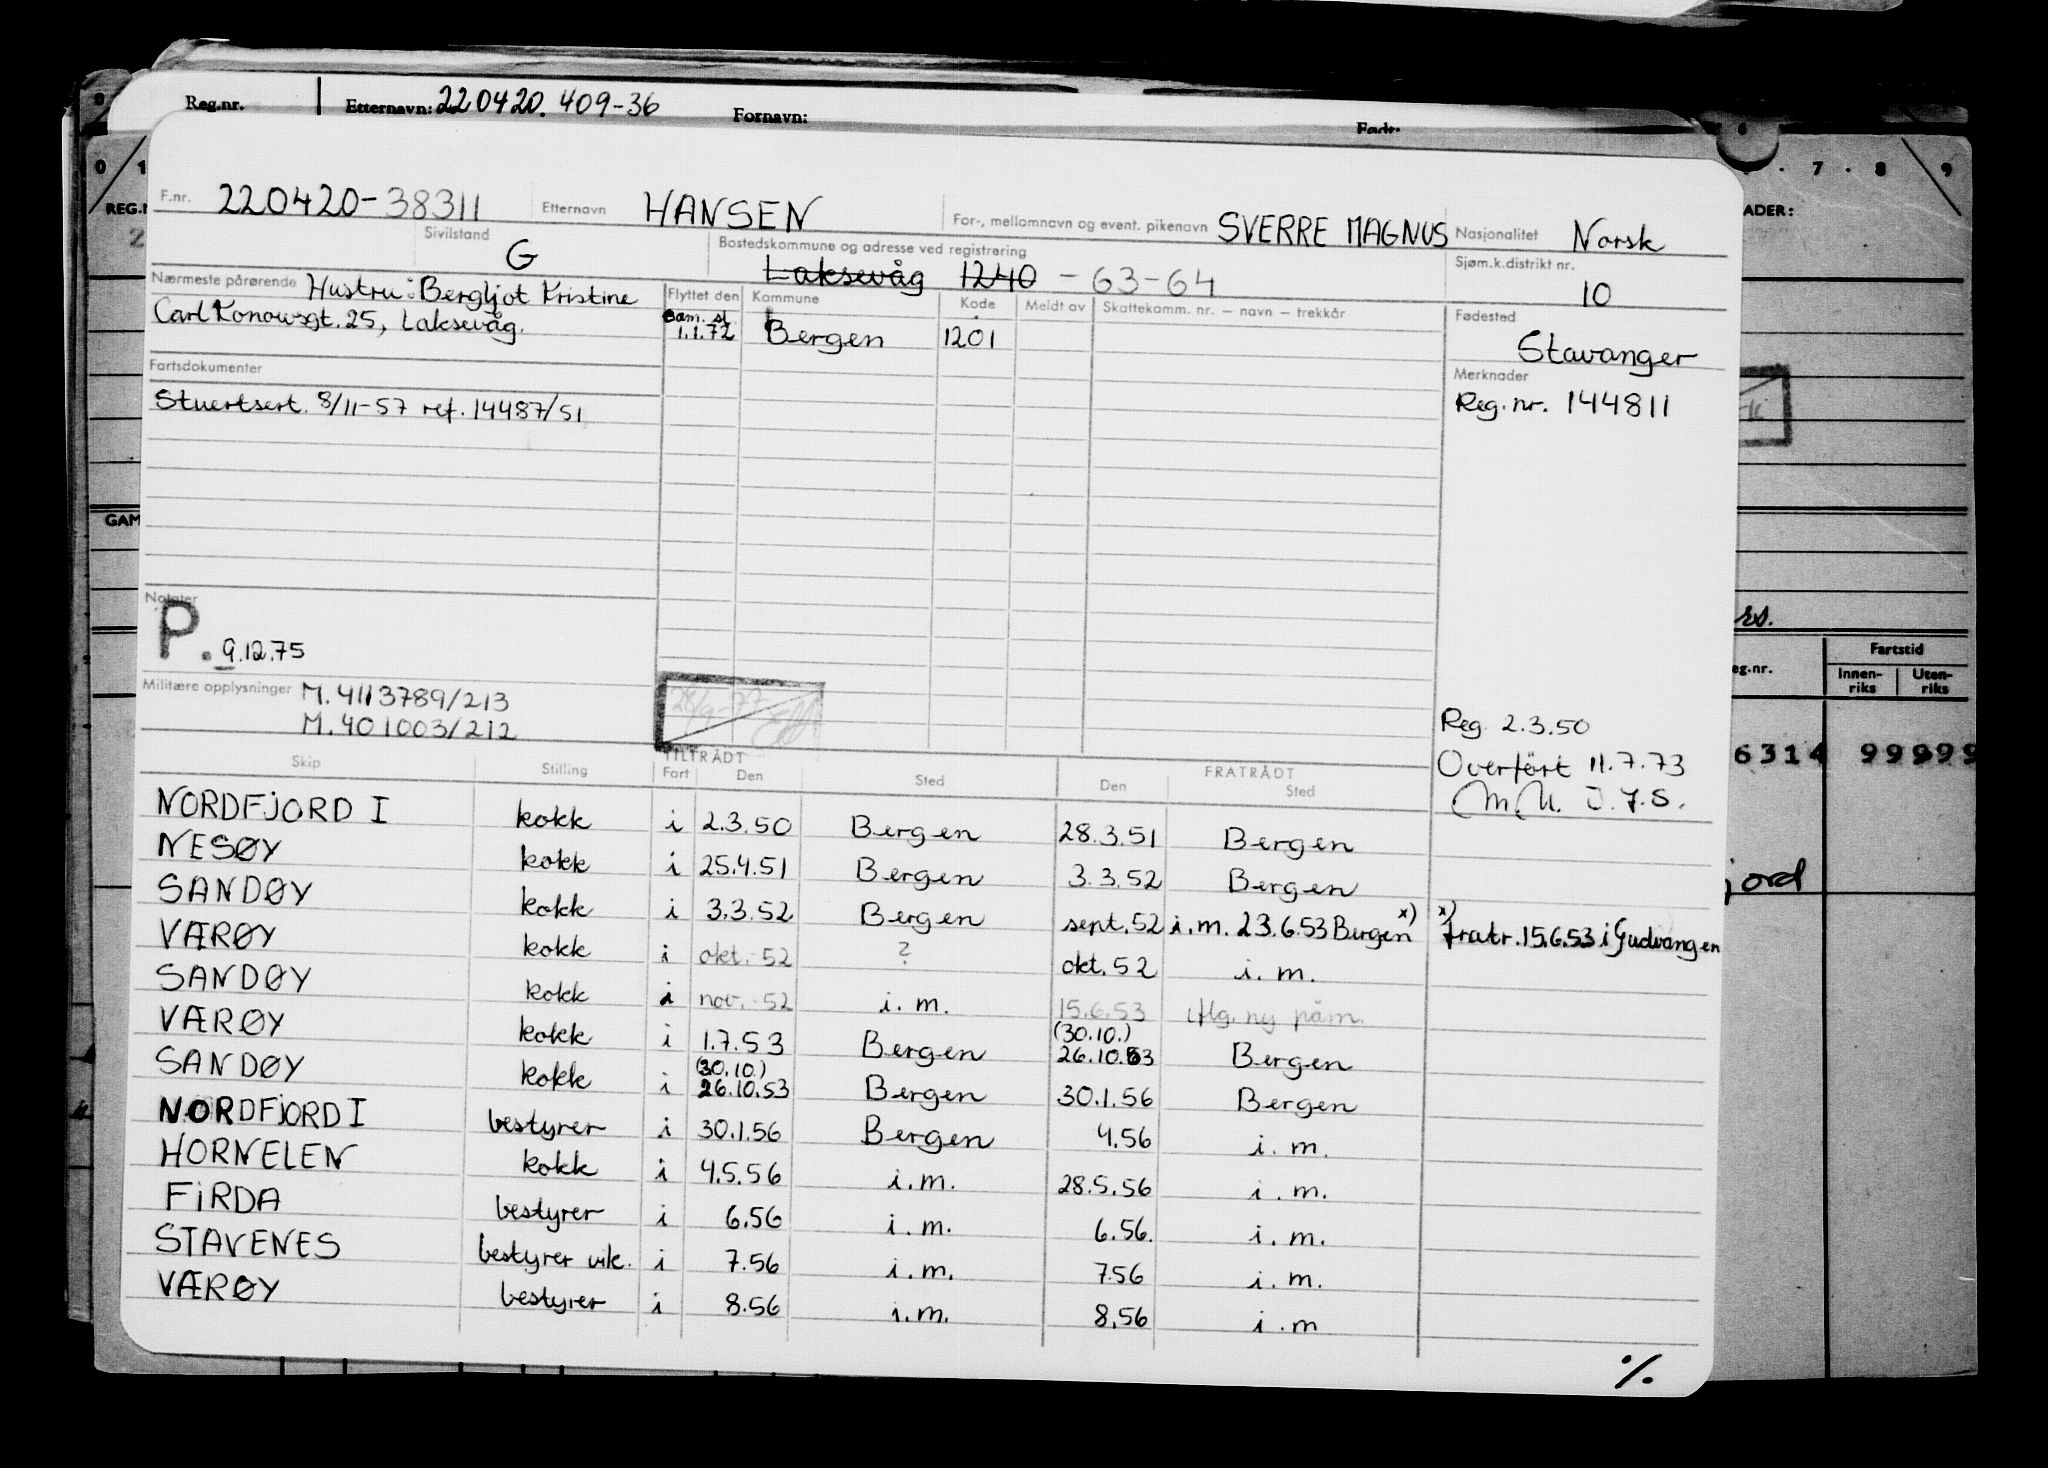 Reg.nr. Etternavn: 220420.409-36 Fornavn: Fadr.
F.nr. 220420-38311 Etternavn HANSEN For-, mellomnavn og event. pikenavn SVERRE MAGNUS Nasjonalitet Norsk
Sivilstand G Bostedskommune og adresse ved registrering Laksevåg 1240 - 63-64 Sjøm.k.distrikt nr. 10
Nærmeste pårørende Hustru: Bergljot Kristine
Carl Konowsgt. 25, Laksevåg.
Flyttet den Kommune Kode Meldt av Skattekomm. nr. – navn – trekkår
Sam. sl. 1.1.72 Bergen 1201
Fødested
Stavanger
Merknader
Reg. nr. 144811
Fartsdokumenter
Stuertsert. 8/11-57 ref. 14487/51
Notater
P. 9.12.75
Militære opplysninger M. 4113789/213
M. 401003/212
28/9-77
Reg. 2.3.50
Overført 11.7.73
M.M. J.F.S.
TILTRÅDT FRATRÅDT
Skip Stilling Fart Den Sted Den Sted
NORDFJORD I kokk i 2.3.50 Bergen 28.3.51 Bergen
NESØY kokk i 25.4.51 Bergen 3.3.52 Bergen
SANDØY kokk i 3.3.52 Bergen sept. 52 i.m. 23.6.53 Bergen x) x) fratr. 15.6.53 i Gudvangen
VÆRØY kokk i okt. 52 ? okt. 52 i.m.
SANDØY kokk i nov. 52 i.m. 15.6.53 iflg. ny påm.
VÆRØY kokk i 1.7.53 Bergen (30.10.) 26.10.53 Bergen
SANDØY kokk i (30.10.) 26.10.53 Bergen 30.1.56 Bergen
NORDFJORD I bestyrer i 30.1.56 Bergen 4.56 i.m.
HORNELEN kokk i 4.5.56 i.m. 28.5.56 i.m.
FIRDA bestyrer i 6.56 i.m. 6.56. i.m.
STAVENES bestyrer vik. i 7.56 i.m. 7.56 i.m.
VÆRØY bestyrer i 8.56 i.m. 8.56 i.m
%.
0 1
REG.N
2
GAM
7 8 9
ADER:
rs.
eg.nr. Fartstid
Innen-riks Uten-riks
6314 99999
jord